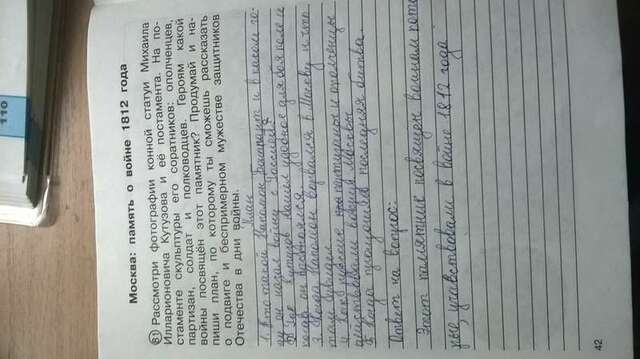 Москва: память о войне 1812 года
61 Рассмотри фотографии конной статуи Михаила
Илларионовича Кутузова и её постамента. На по-
стаменте скульптуры его соратников: ополченцев,
партизан, солдат и полководцев. Героям какой
войны посвящён этот памятник? Продумай и на-
пиши план, по которому ты сможешь рассказать
о подвиге и беспримерном мужестве защитников
Отечества в дни войны.
1. Кто такой Наполеон Бонапарт и в каком го-
ду он начал войну с Россией?
2. Где Кутузов нашел удобное для боя поле и
когда он
3. Когда Наполеон ворвался в Москву и что
там увидел
4. Как простые партизаны и
действовали вокруг Москвы
5. Когда произошла последняя битва.
Ответ на вопрос:
Этот памятник посвящен воинам кото
рые, учавствовали в войне 1812 года
42
110